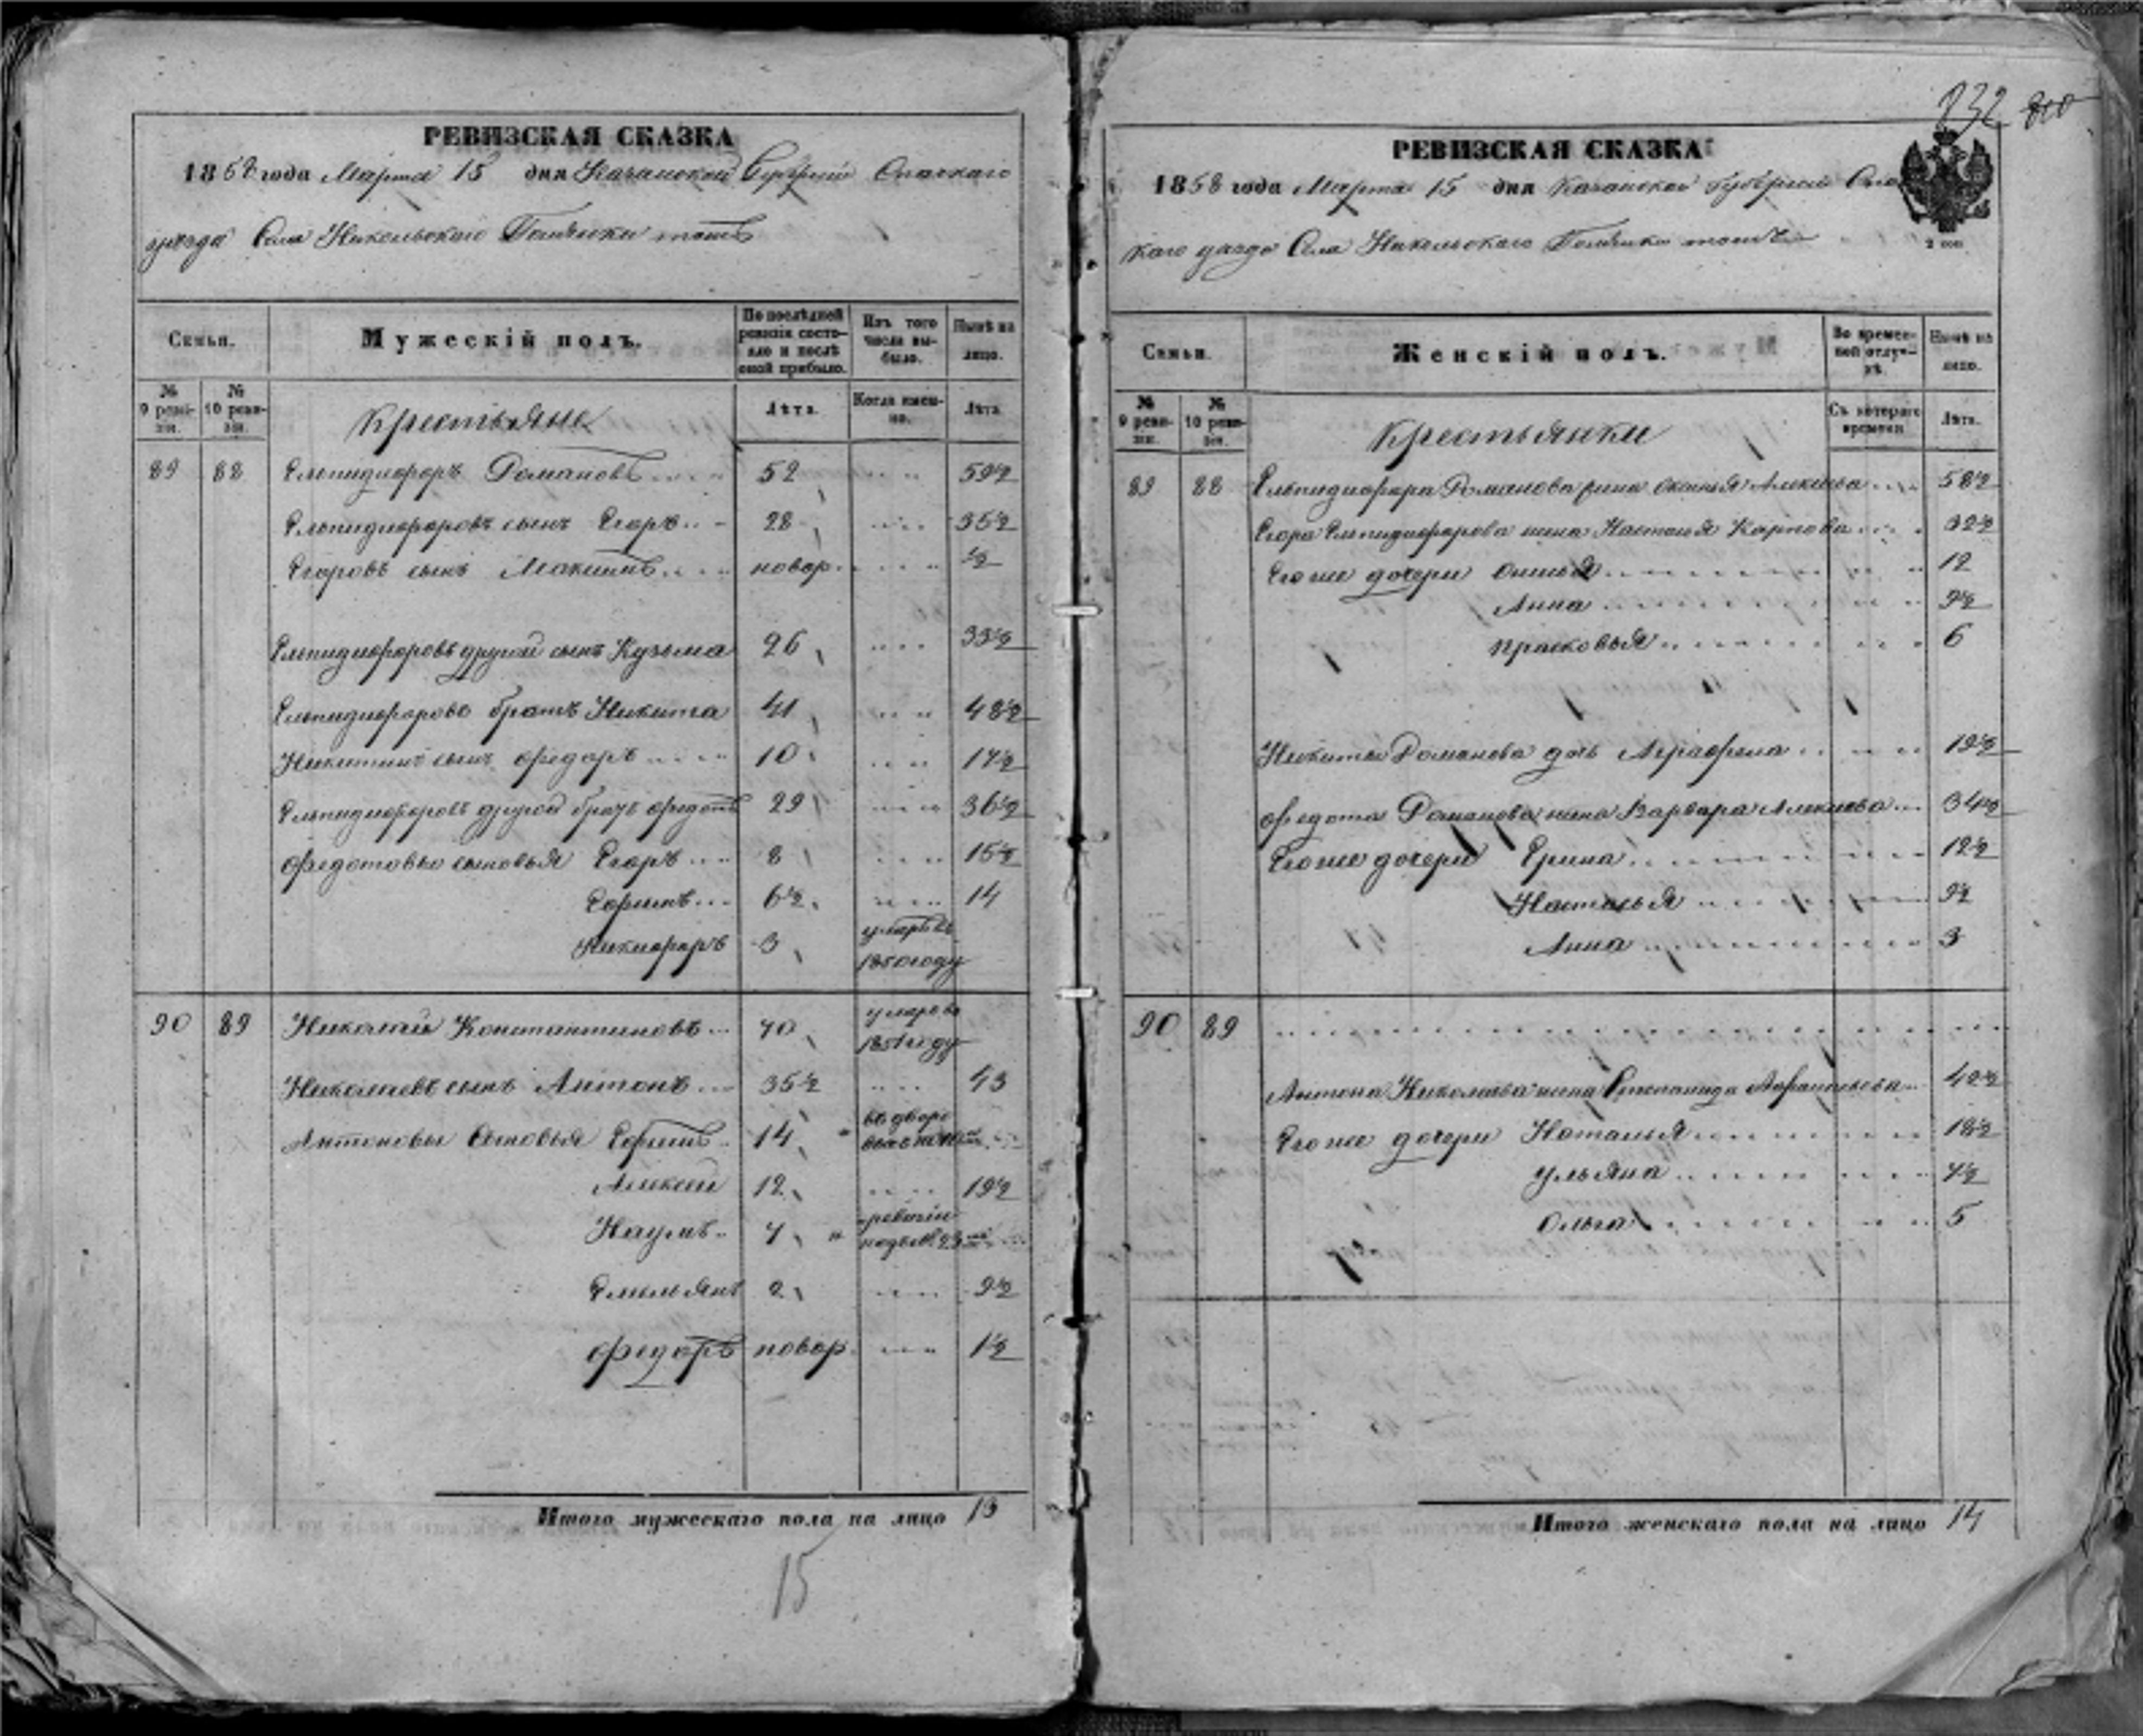 РЕВИЗСКАЯ СКАЗКА
1858 года Марта 15 дня Казанской Губерніи Спаскаго
уезда Села Никольскаго тожъ
Семьи.
Мужескій полъ.
По послѣдней ревизіи состояло и послѣ оной прибыло.
Изъ того числа выбыло.
Нынѣ на лицо.
№ 9 ревизіи.
№ 10 ревизіи.
Крестьяне
Лѣта.
Когда именно.
Лѣта.
89 88 Елпидифоръ Романовъ 52 59½
Елпидифоровъ сынъ Егоръ 28 35½
Егоровъ сынъ Максимъ новор. ½
Елпидифоровъ другой сынъ Кузьма 26 33½
Елпидифорово братъ Никита 41 48½
Никитинъ сынъ Федоръ 10 17½
Елпидифоровъ другой братъ Федотъ 29 36½
Федотовы сыновья Егоръ 8 15½
Ефимъ 6½ 14
Никифоръ 3 умеръ въ
1850 году
90 89 Николай Константиновъ 70 умеръ въ
1851 году
Николаевъ сынъ Антонъ 35½ 43
Антоновы Сыновья Ефимъ 14
Алексей 12 19½
Наумъ 7
Емельянъ 2 9½
Федоръ новор. 1½
Итого мужескаго пола на лицо 13
15
232
РЕВИЗСКАЯ СКАЗКА
1858 года Марта 15 дня Казанской Губерніи Спас
каго уезда Села Никольскаго тожъ
Семьи.
Женскій полъ.
Во временной отлучкѣ.
Нынѣ на лицо.
№ 9 ревизіи.
№ 10 ревизіи.
Крестьянки
Съ котораго времени.
Лѣта.
89 88 Елпидифора Романова жена Оксинья Алексеева 58½
Егора Елпидифорова жена Наталья Карпова 32½
Его же дочери 12
Анна 9½
Прасковья 6
Никиты Романова дочь Аграфена 19½
Федота Романова жена Варвара Алексеева 34½
Его же дочери Ерина 12½
Наталья 9½
Анна 3
90 89
Антона Николаева жена Степанида Афанасьева 42½
Его же дочери Наталья 18½
Ульяна 7½
Ольга 5
Итого женскаго пола на лицо 14